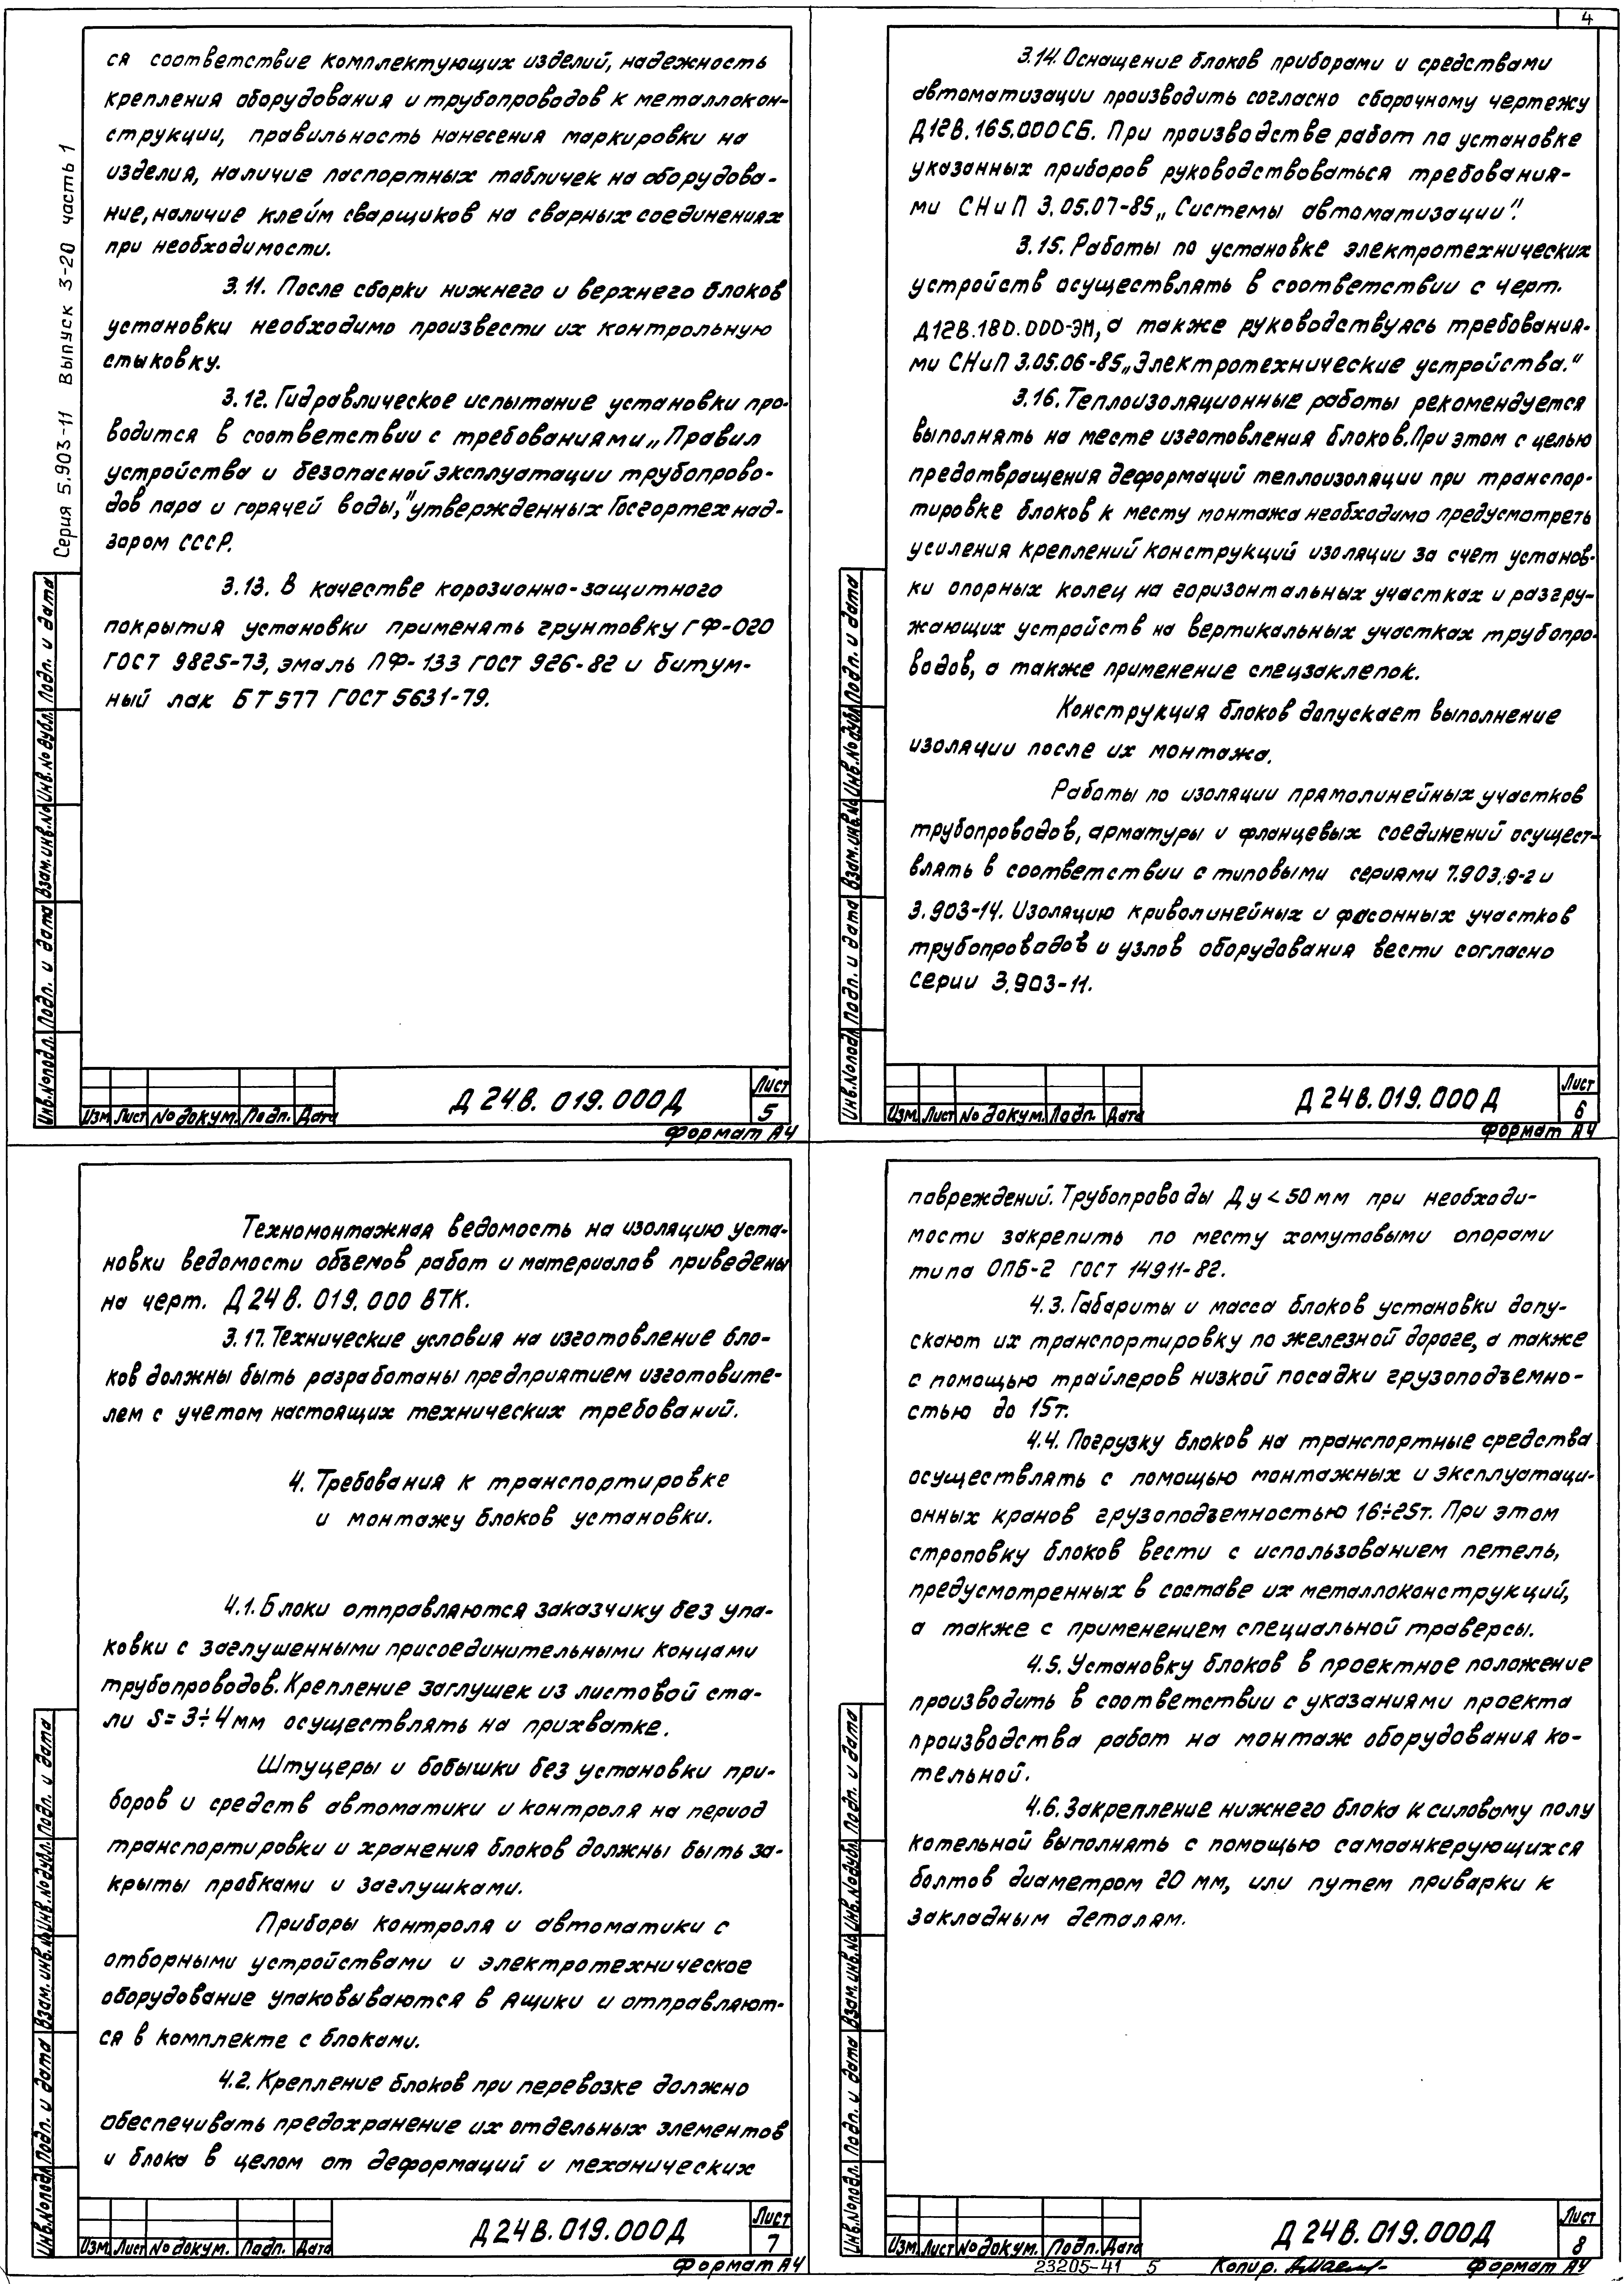 4
Серия 5.903-11 Выпуск 3-20 часть 1
ся соответствие комплектующих изделий, надежность
крепления оборудования и трубопроводов к металлокон-
струкции, правильность нанесения маркировки на
изделия, наличие паспортных табличек на оборудова-
ние, наличие клейм сварщиков на сварных соединениях
при необходимости.
3.11. После сборки нижнего и верхнего блоков
установки необходимо произвести их контрольную
стыковку.
3.12. Гидравлическое испытание установки про-
водится в соответствии с требованиями „Правил
устройства и безопасной эксплуатации трубопрово-
дов пара и горячей воды," утвержденных Госгортехнад-
зором СССР.
3.13. В качестве корозионно-защитного
покрытия установки применять грунтовку ГФ-020
ГОСТ 9825-73, эмаль ПФ-133 ГОСТ 926-82 и битум-
ный лак БТ577 ГОСТ 5631-79.
Инв.№подл. Подп. и дата Взам.инв.№ Инв.№дубл. Подп. и дата
Изм. Лист № докум. Подп. Дата
Д 24В. 019.000Д
Лист
5
Формат А4
3.14. Оснащение блоков приборами и средствами
автоматизации производить согласно сборочному чертежу
Д12В.165.000СБ. При производстве работ по установке
указанных приборов руководствоваться требования-
ми СНиП 3.05.07-85 „Системы автоматизации".
3.15. Работы по установке электротехнических
устройств осуществлять в соответствии с черт.
Д12В.180.000-ЭМ, а также руководствуясь требования-
ми СНиП 3.05.06-85 „Электротехнические устройства."
3.16. Теплоизоляционные работы рекомендуется
выполнять на месте изготовления блоков. При этом с целью
предотвращения деформаций теплоизоляции при транспор-
тировке блоков к месту монтажа необходимо предусмотреть
усиления креплений конструкций изоляции за счет установ-
ки опорных колец на горизонтальных участках и разгру-
жающих устройств на вертикальных участках трубопро-
водов, а также применение спецзаклепок.
Конструкция блоков допускает выполнение
изоляции после их монтажа.
Работы по изоляции прямолинейных участков
трубопроводов, арматуры и фланцевых соединений осущест-
влять в соответствии с типовыми сериями 7.903.9-2 и
3.903-14. Изоляцию криволинейных и фасонных участков
трубопроводов и узлов оборудования вести согласно
серии 3.903-11.
Инв.№подл. Подп. и дата Взам.инв.№ Инв.№дубл. Подп. и дата
Изм. Лист № докум. Подп. Дата
Д 24В. 019.000Д
Лист
6
Формат А4
Техномонтажная ведомость на изоляцию уста-
новки ведомости объемов работ и материалов приведены
на черт. Д 24В. 019.000 ВТК.
3.17. Технические условия на изготовление бло-
ков должны быть разработаны предприятием изготовите-
лем с учетом настоящих технических требований.
4. Требования к транспортировке
и монтажу блоков установки.
4.1. Блоки отправляются заказчику без упа-
ковки с заглушенными присоединительными концами
трубопроводов. Крепление заглушек из листовой ста-
ли S=3÷4мм осуществлять на прихватке.
Штуцеры и бобышки без установки при-
боров и средств автоматики и контроля на период
транспортировки и хранения блоков должны быть за-
крыты пробками и заглушками.
Приборы контроля и автоматики с
отборными устройствами и электротехническое
оборудование упаковываются в ящики и отправляют-
ся в комплекте с блоками.
4.2. Крепление блоков при перевозке должно
обеспечивать предохранение их отдельных элементов
и блока в целом от деформаций и механических
Инв.№подл. Подп. и дата Взам.инв.№ Инв.№дубл. Подп. и дата
Изм. Лист № докум. Подп. Дата
Д24В.019.000Д
Лист
7
Формат А4
повреждений. Трубопроводы Ду<50мм при необходи-
мости закрепить по месту хомутовыми опорами
типа ОПБ-2 ГОСТ 14911-82.
4.3. Габариты и масса блоков установки допу-
скают их транспортировку по железной дороге, а также
с помощью трайлеров низкой посадки грузоподъемно-
стью до 15т.
4.4. Погрузку блоков на транспортные средства
осуществлять с помощью монтажных и эксплуатаци-
онных кранов грузоподъемностью 16÷25т. При этом
строповку блоков вести с использованием петель,
предусмотренных в составе их металлоконструкций,
а также с применением специальной траверсы.
4.5. Установку блоков в проектное положение
производить в соответствии с указаниями проекта
производства работ на монтаж оборудования ко-
тельной.
4.6. Закрепление нижнего блока к силовому полу
котельной выполнять с помощью самоанкерующихся
болтов диаметром 20 мм, или путем приварки к
закладным деталям.
Инв.№подл. Подп. и дата Взам.инв.№ Инв.№дубл. Подп. и дата
Изм. Лист № докум. Подп. Дата
Д 24В.019.000Д
Лист
8
23205-41 5 Копир. Формат А4